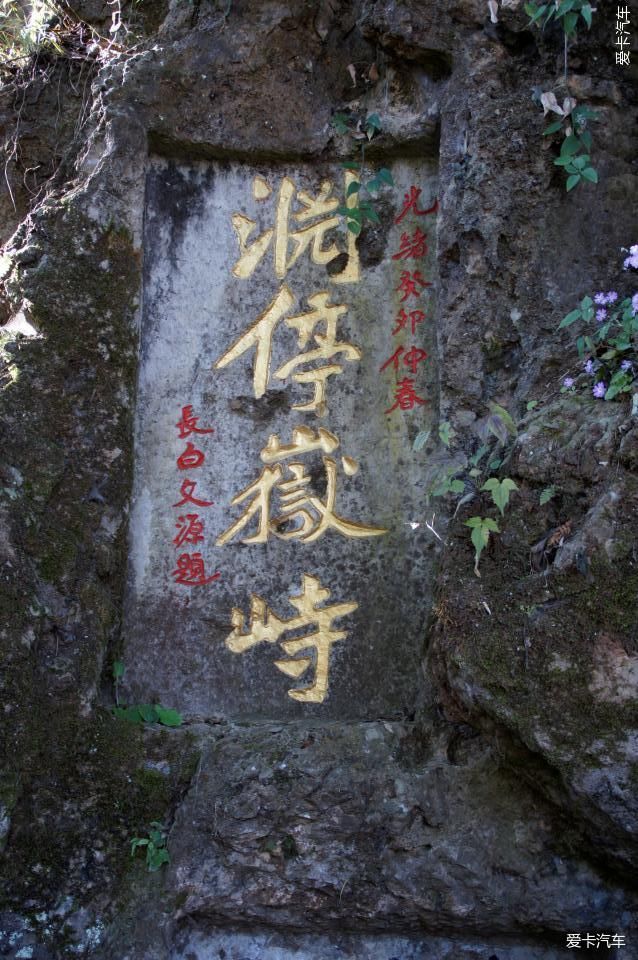 光緒癸卯仲春
淵停嶽峙
長白文源題
爱卡汽车
爱卡汽车